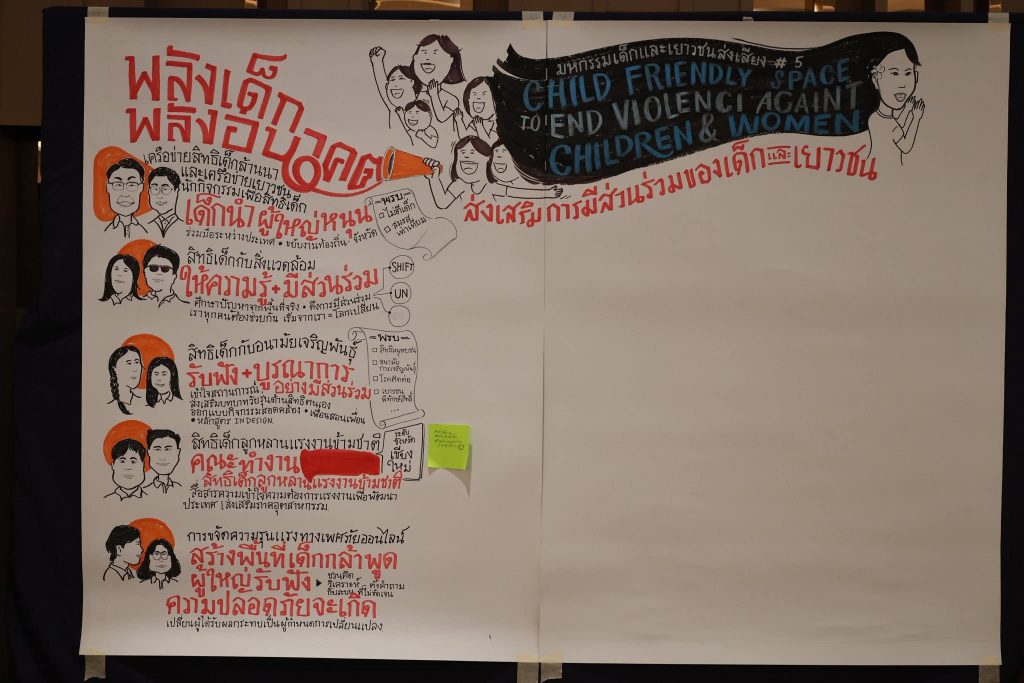 พลังเด็ก
พลังอนาคต
มหกรรมเด็กและเยาวชนส่งเสียง #5
CHILD FRIENDLY SPACE
TO END VIOLENCI AGAINT
CHILDREN & WOMEN
ส่งเสริมการมีส่วนร่วมของเด็กและเยาวชน
เครือข่ายสิทธิเด็กล้านนา
และเครือข่ายเยาวชน
นักกิจกรรมเพื่อสิทธิเด็ก
เด็กนำ ผู้ใหญ่หนุน
ร่วมมือระหว่างประเทศ • ขยับงานท้องถิ่น - จังหวัด
พรบ
ไม่ตีเด็ก
สมรสเท่าเทียม
สิทธิเด็กกับสิ่งแวดล้อม
ให้ความรู้ + มีส่วนร่วม
ศึกษาปัญหาจากพื้นที่จริง • ดึงการมีส่วนร่วม
เราทุกคนต้องช่วยกัน เริ่มจากเรา = โลกเปลี่ยน
SHIFT
UN
สิทธิเด็กกับอนามัยเจริญพันธุ์
รับฟัง + บูรณาการ
อย่างมีส่วนร่วม
เข้าใจสถานการณ์
ส่งเสริมบทบาทวัยรุ่นด้านสิทธิตนเอง
ออกแบบกิจกรรมสอดคล้อง • เพื่อนสอนเพื่อน
• หลักสูตร IN DESIGN
พรบ
สิทธิมนุษยชน
อนามัย
การเจริญพันธุ์
โรคติดต่อ
เยาวชน
พิทักษ์สิทธิ์
สิทธิเด็กลูกหลานแรงงานข้ามชาติ
คณะทำงาน
สิทธิเด็กลูกหลานแรงงานข้ามชาติ
สื่อสารความเข้าใจความต้องการแรงงานเพื่อพัฒนา
ประเทศ ส่งเสริมภาคอุตสาหกรรม
ระดับ
จังหวัด
เชียง
ใหม่
การขจัดความรุนแรงทางเพศภัยออนไลน์
สร้างพื้นที่เด็กกล้าพูด
ผู้ใหญ่รับฟัง
ชวนคิด
วิเคราะห์ ตั้งคำถาม
กับระบบ ที่ไม่ชัดเจน
ความปลอดภัยจะเกิด
เปลี่ยนผู้ได้รับผลกระทบเป็นผู้กำหนดการเปลี่ยนแปลง